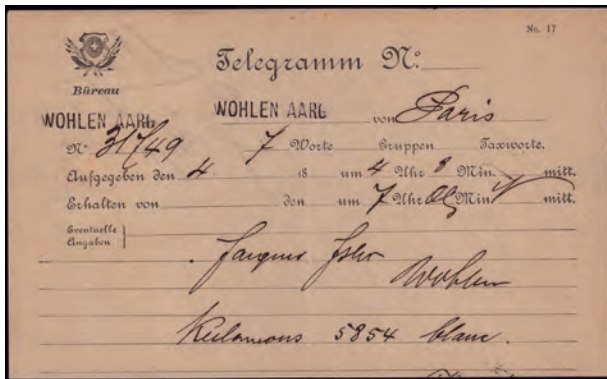 No. 17
Telegramm No.
Büreau
WOHLEN AARG. WOHLEN AARG von Paris
No 7 Worte Gruppen Taxworte.
Aufgegeben den 4 18 um 4 Uhr 8 Min. mitt.
Erhalten von den um 7 Uhr Min mitt.
Eventuelle
Angaben
Jacques Isler
Wohlen
Reclamons 5854 blanc.